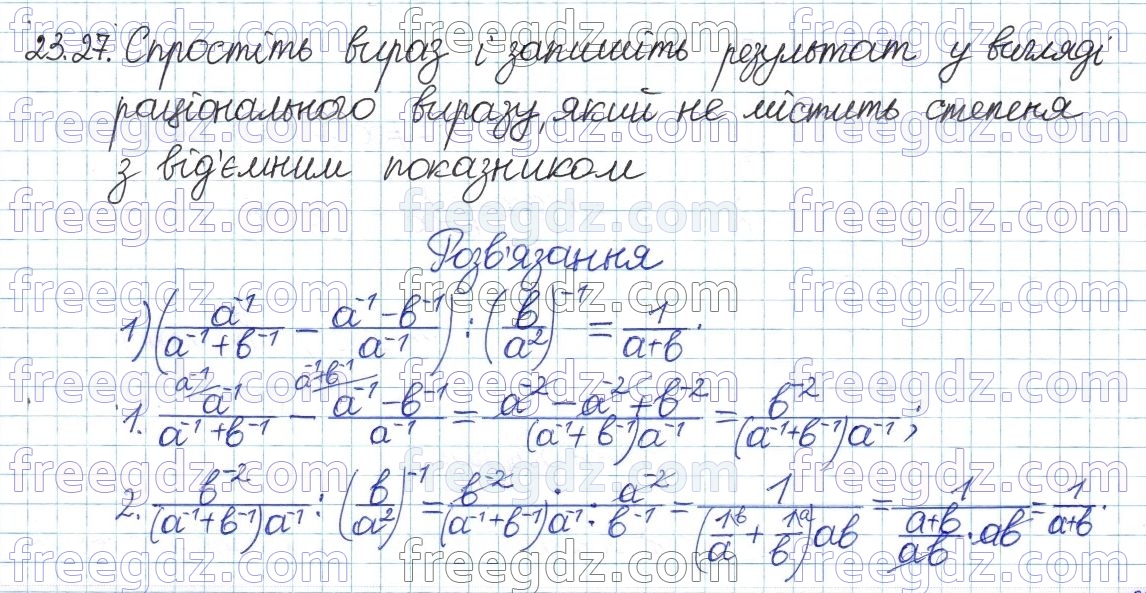 23.27. Спростіть вираз і запишіть результат у вигляді
раціонального виразу, який не містить степеня
з від'ємним показником
Розв'язання
1) (a⁻¹/(a⁻¹+b⁻¹) − (a⁻¹−b⁻¹)/a⁻¹) : (b/a²)⁻¹ = 1/(a+b).
1. a⁻¹ a⁻¹/(a⁻¹+b⁻¹) − a⁻¹+b⁻¹ (a⁻¹−b⁻¹)/a⁻¹ = (a⁻²−a⁻²+b⁻²)/((a⁻¹+b⁻¹)a⁻¹) = b⁻²/((a⁻¹+b⁻¹)a⁻¹);
2. b⁻²/((a⁻¹+b⁻¹)a⁻¹) : (b/a²)⁻¹ = b⁻²/((a⁻¹+b⁻¹)a⁻¹) : a⁻²/b⁻¹ = 1/((1ᵇ/a + 1ᵃ/b)ab) = 1/((a+b)/ab · ab) = 1/(a+b).
freegdz.com